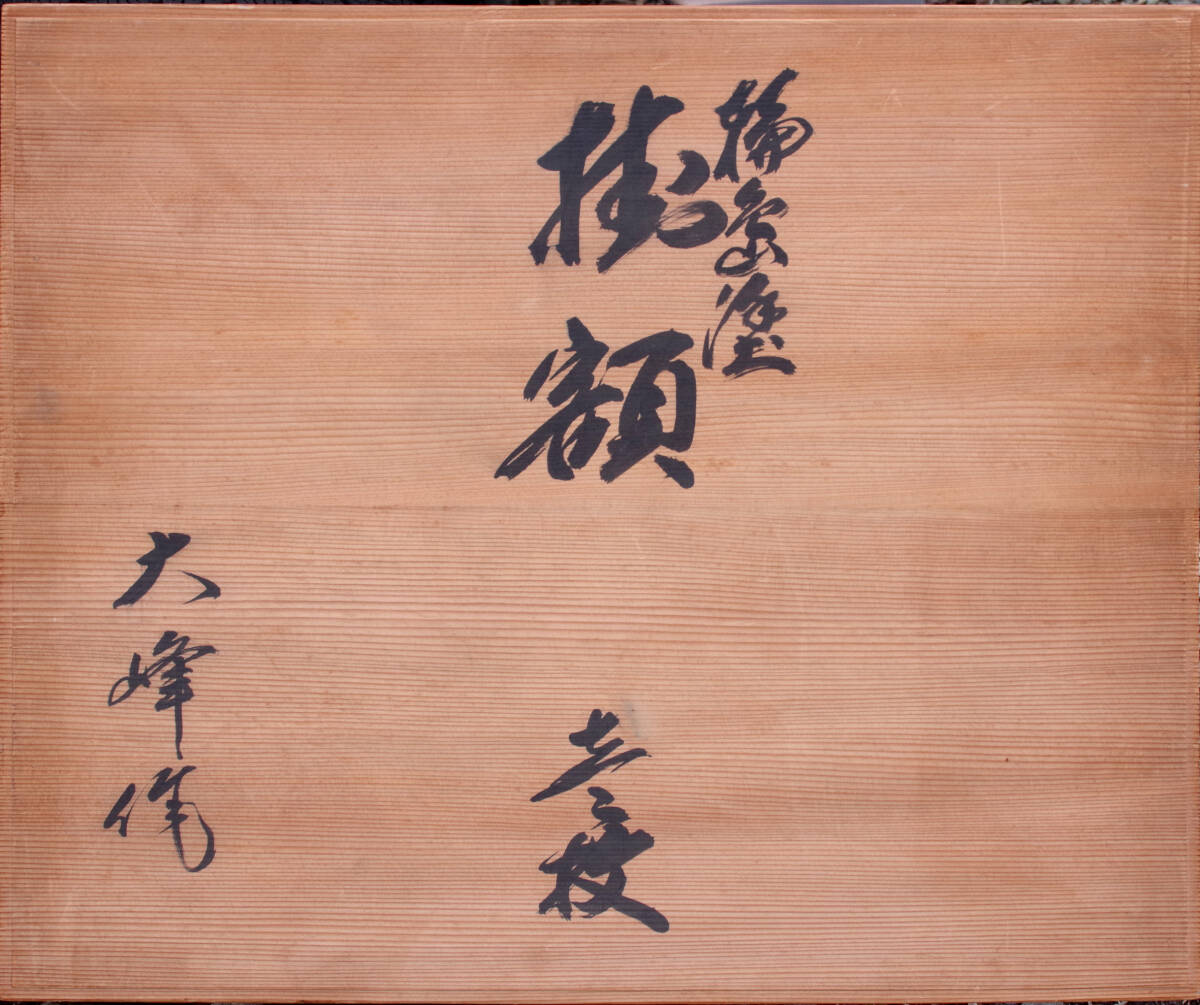 輪島塗
掛額 壱枚
大峰作